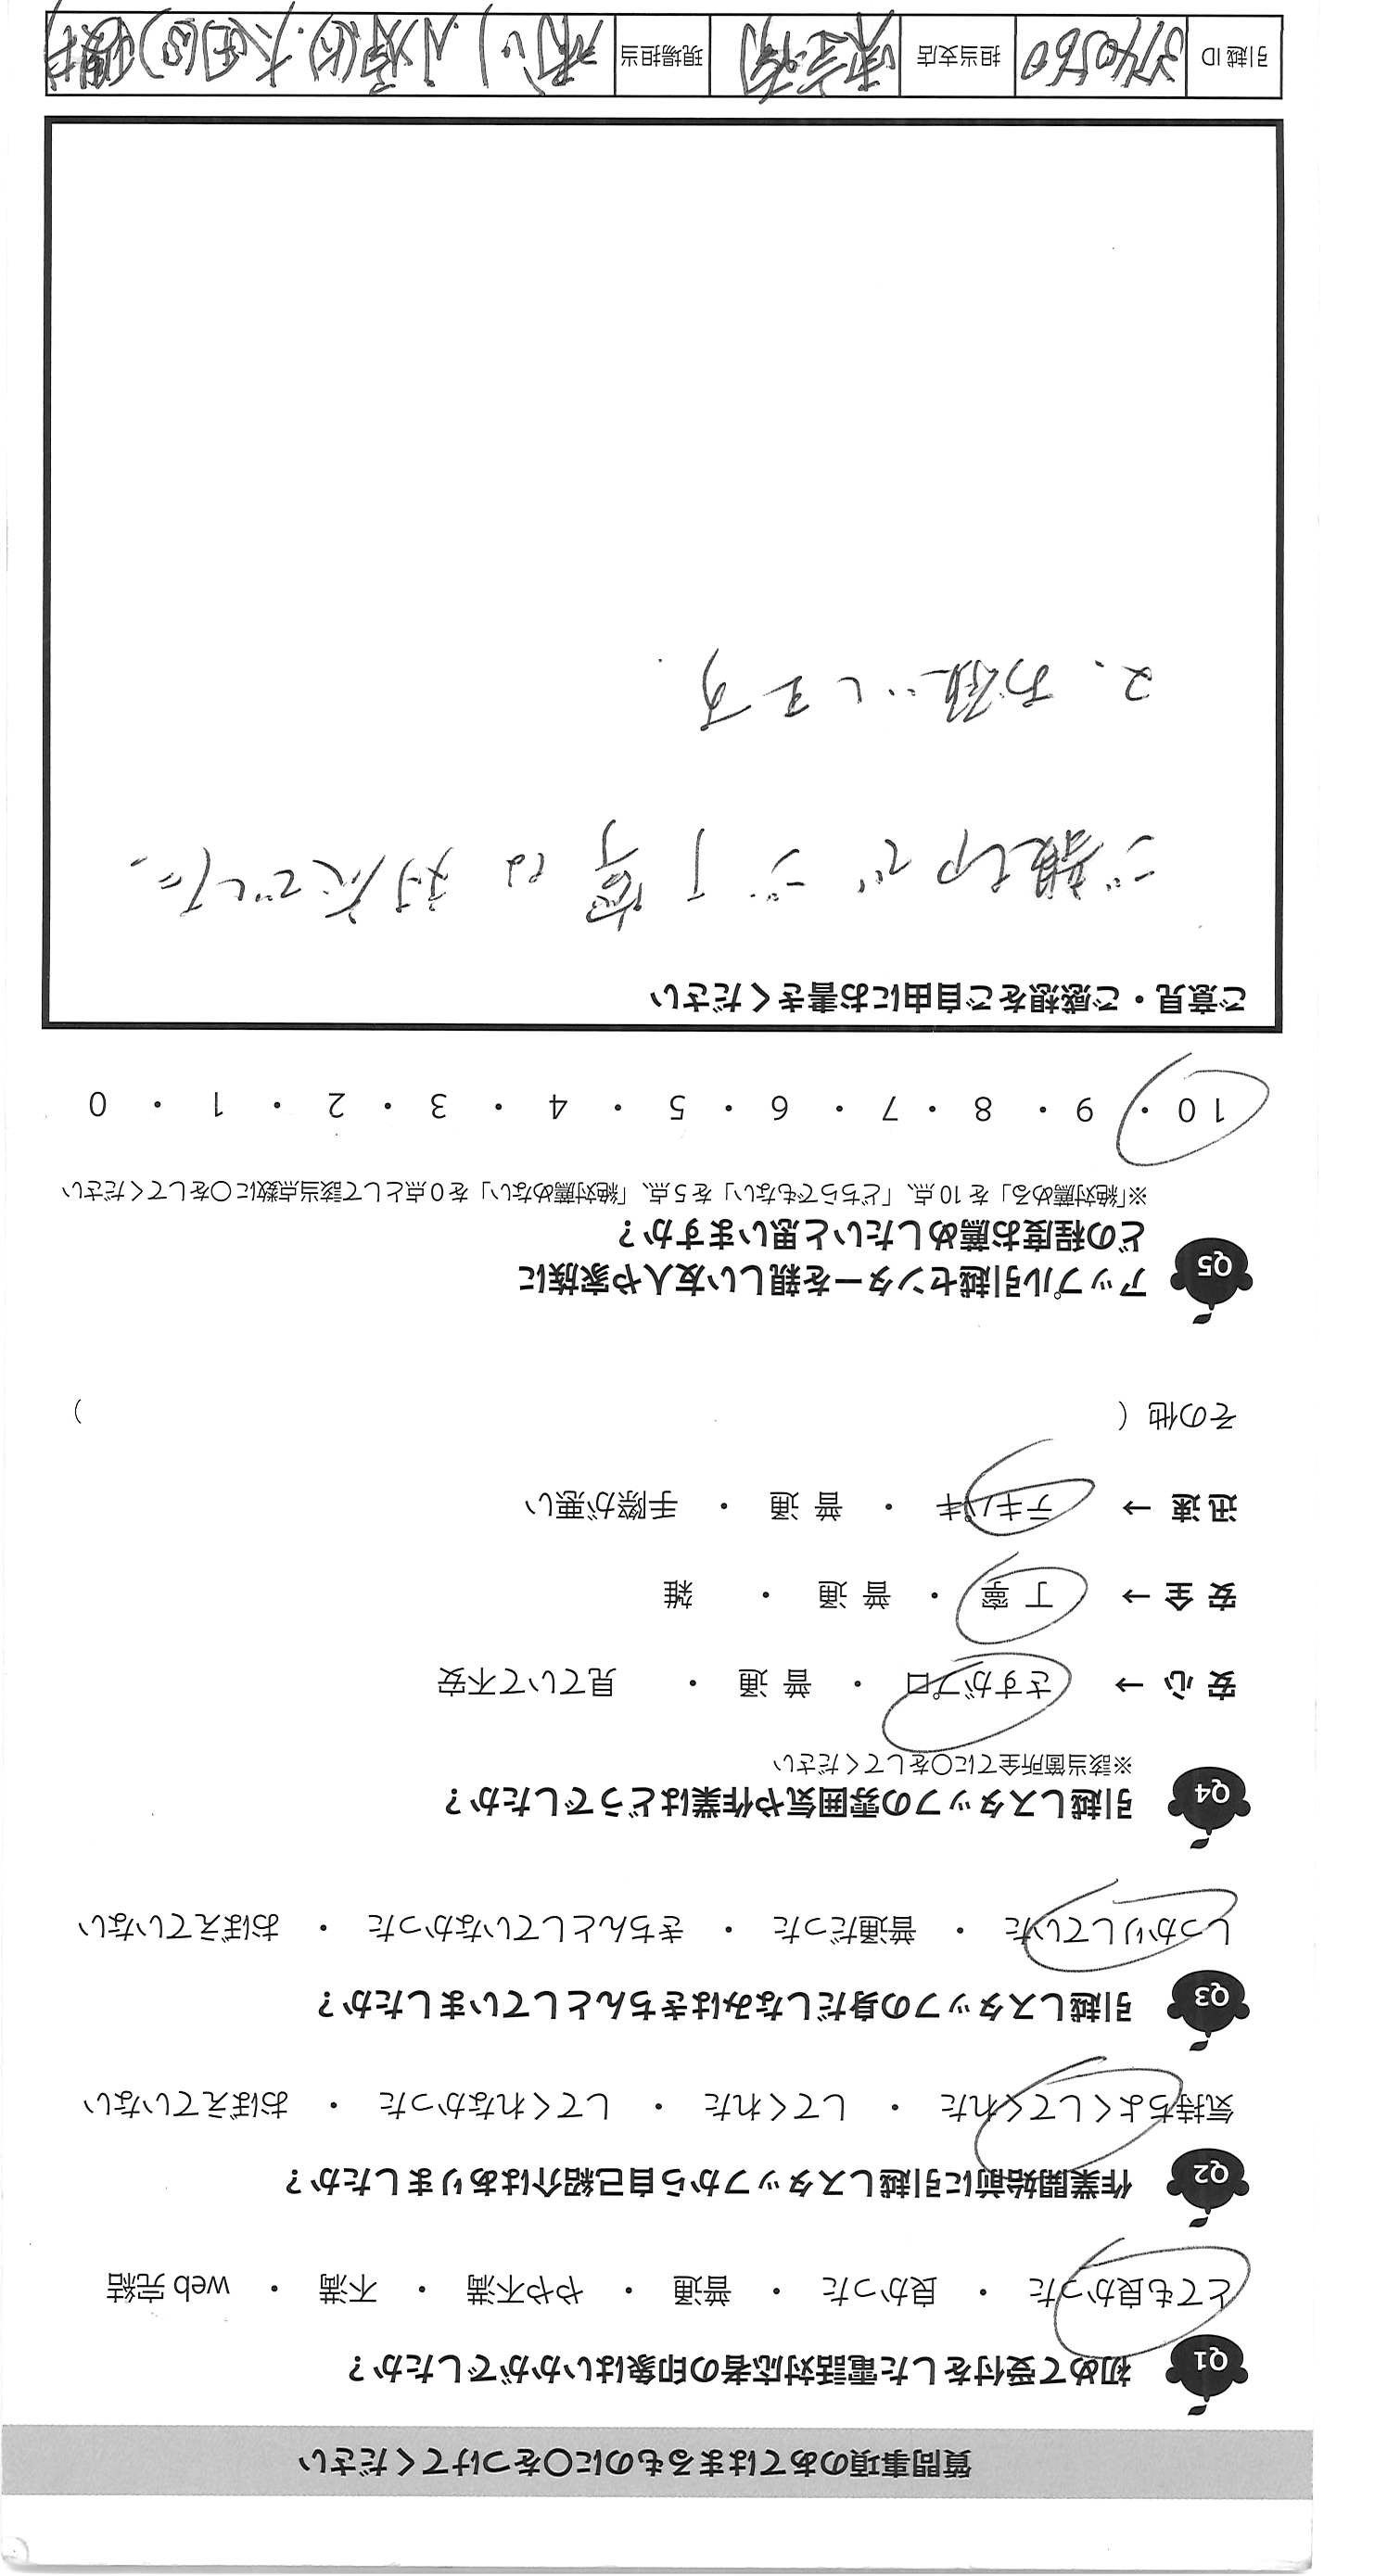 質問事項のあてはまるものに〇をつけてください
Q1 初めて受付をした電話対応者の印象はいかがでしたか？
とても良かった ・ 良かった ・ 普通 ・ やや不満 ・ 不満 ・ web 完結
Q2 作業開始前に引越しスタッフから自己紹介はありましたか？
気持ちよくしてくれた ・ してくれた ・ してくれなかった ・ おぼえていない
Q3 引越しスタッフの身だしなみはきちんとしていましたか？
しっかりしていた ・ 普通だった ・ きちんとしていなかった ・ おぼえていない
Q4 引越しスタッフの雰囲気や作業はどうでしたか？
※該当箇所全てに〇をしてください
安心 → さすがプロ ・ 普通 ・ 見ていて不安
安全 → 丁寧 ・ 普通 ・ 雑
迅速 → テキパキ ・ 普通 ・ 手際が悪い
その他（ ）
Q5 アップル引越センターを親しい友人や家族に
どの程度お薦めしたいと思いますか？
※「絶対薦める」を 10 点、「どちらでもない」を 5 点、「絶対薦めない」を 0 点として該当点数に〇をしてください
10 ・ 9 ・ 8 ・ 7 ・ 6 ・ 5 ・ 4 ・ 3 ・ 2 ・ 1 ・ 0
ご意見・ご感想をご自由にお書きください
ご親切でご丁寧な対応でした。
又、お願いします.
引越 ID 3740560 担当支店 現場担当